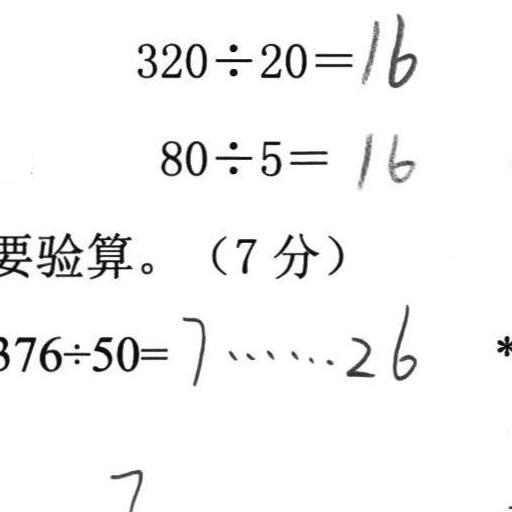 320÷20=16
80÷5=16
要验算。（7分）
376÷50=7……26 *
7